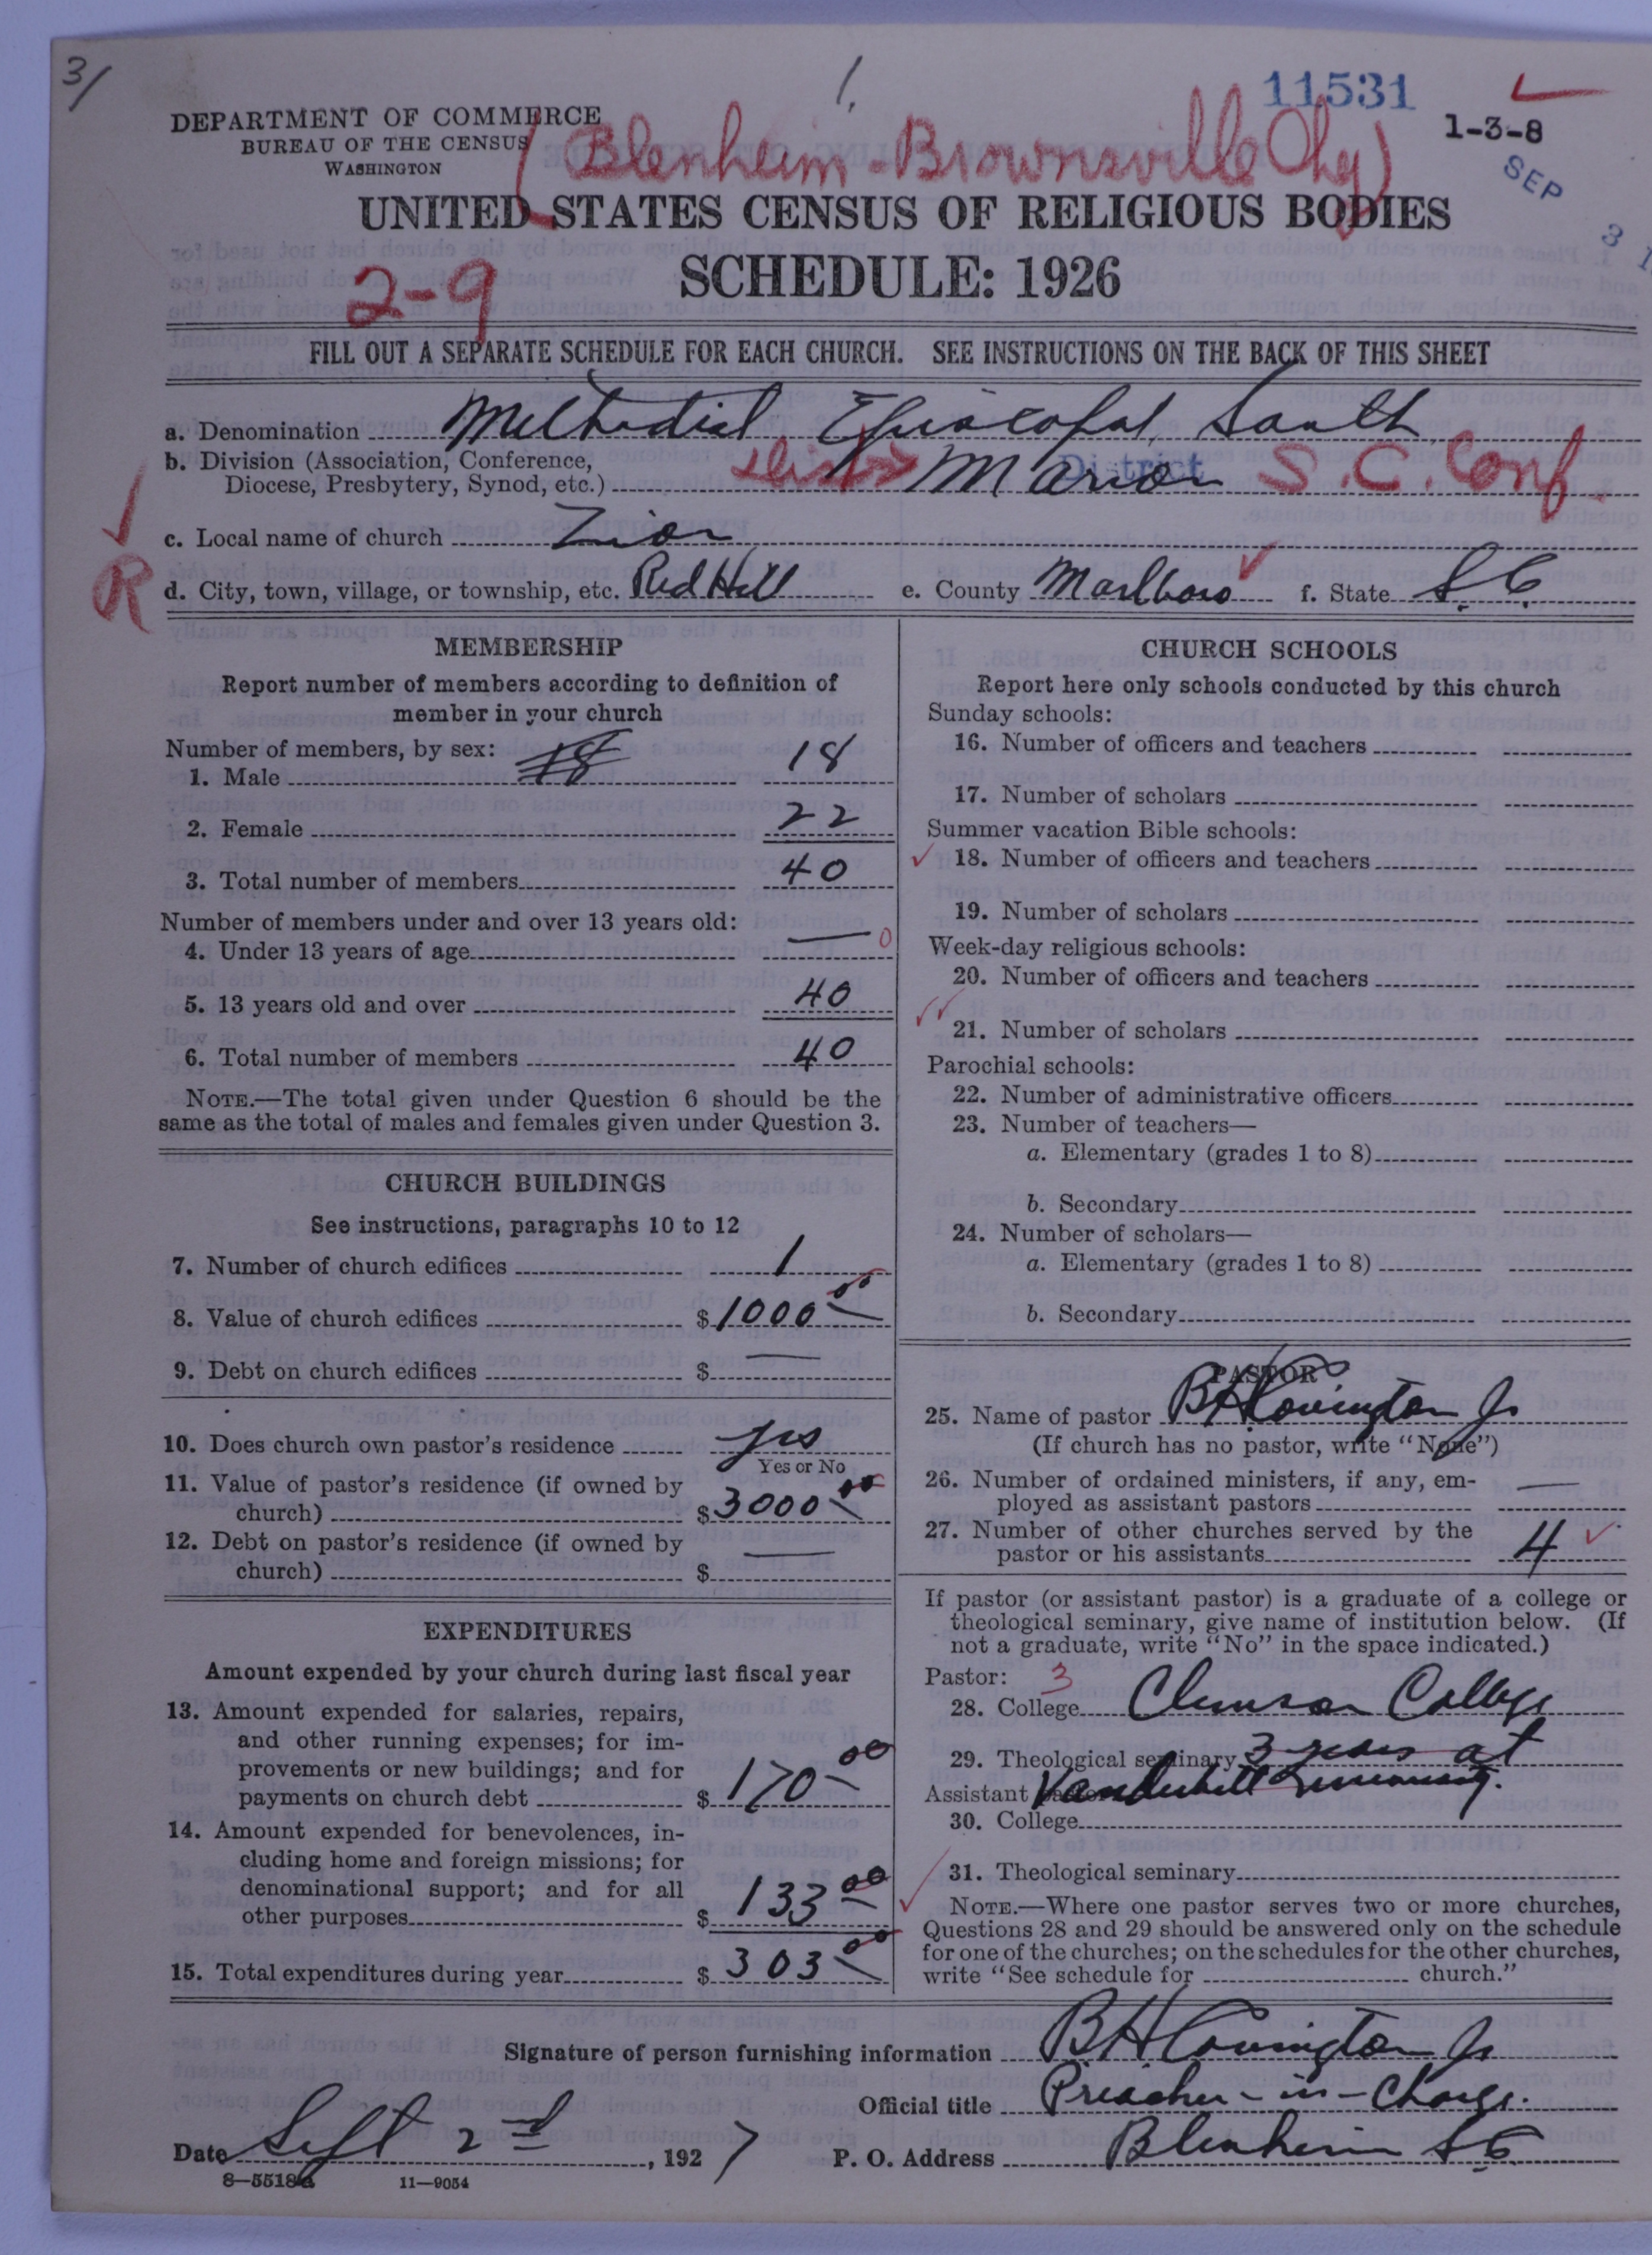 3/
1.
11531
1-3-8
DEPARTMENT OF COMMERCE
BUREAU OF THE CENSUS
WASHINGTON
(Blenheim-Brownsville Chg)
SEP 3 1
UNITED STATES CENSUS OF RELIGIOUS BODIES
2-9
SCHEDULE: 1926
FILL OUT A SEPARATE SCHEDULE FOR EACH CHURCH. SEE INSTRUCTIONS ON THE BACK OF THIS SHEET
a. Denomination Methodist Episcopal, South
b. Division (Association, Conference,
Diocese, Presbytery, Synod, etc.) Marion District S.C. Conf.
c. Local name of church Zion
R
d. City, town, village, or township, etc. Red Hill e. County Marlboro f. State S.C.
MEMBERSHIP
Report number of members according to definition of
member in your church
Number of members, by sex:
1. Male 18 18
2. Female 22
3. Total number of members 40
Number of members under and over 13 years old:
4. Under 13 years of age — 0
5. 13 years old and over 40
6. Total number of members 40
NOTE.—The total given under Question 6 should be the
same as the total of males and females given under Question 3.
CHURCH BUILDINGS
See instructions, paragraphs 10 to 12
7. Number of church edifices 1
8. Value of church edifices $1000 00
9. Debt on church edifices $ —
10. Does church own pastor's residence yes
Yes or No
11. Value of pastor's residence (if owned by
church) $3000 00
12. Debt on pastor's residence (if owned by
church) $ —
EXPENDITURES
Amount expended by your church during last fiscal year
13. Amount expended for salaries, repairs,
and other running expenses; for im-
provements or new buildings; and for
payments on church debt $ 170 00
14. Amount expended for benevolences, in-
cluding home and foreign missions; for
denominational support; and for all
other purposes $ 133 00
15. Total expenditures during year $ 303 00
CHURCH SCHOOLS
Report here only schools conducted by this church
Sunday schools:
16. Number of officers and teachers
17. Number of scholars
Summer vacation Bible schools:
18. Number of officers and teachers
19. Number of scholars
Week-day religious schools:
20. Number of officers and teachers
21. Number of scholars
Parochial schools:
22. Number of administrative officers
23. Number of teachers—
a. Elementary (grades 1 to 8)
b. Secondary
24. Number of scholars—
a. Elementary (grades 1 to 8)
b. Secondary
PASTOR
25. Name of pastor B H Covington Jr
(If church has no pastor, write "None")
26. Number of ordained ministers, if any, em-
ployed as assistant pastors —
27. Number of other churches served by the
pastor or his assistants 4
If pastor (or assistant pastor) is a graduate of a college or
theological seminary, give name of institution below. (If
not a graduate, write "No" in the space indicated.)
Pastor: 3
28. College Clemson College
29. Theological seminary 3 years at
Assistant pastor: Vanderbilt
30. College
31. Theological seminary
NOTE.—Where one pastor serves two or more churches,
Questions 28 and 29 should be answered only on the schedule
for one of the churches; on the schedules for the other churches,
write "See schedule for church."
Signature of person furnishing information B H Covington Jr
Official title Preacher-in-Charge.
Date Sept 2nd, 1927 P. O. Address Blenheim S.C.
8—5518a 11—9054